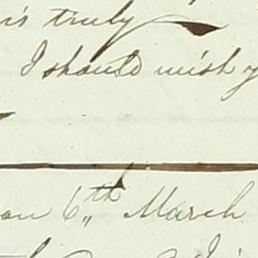 is truly
I should wish y
on 6th March